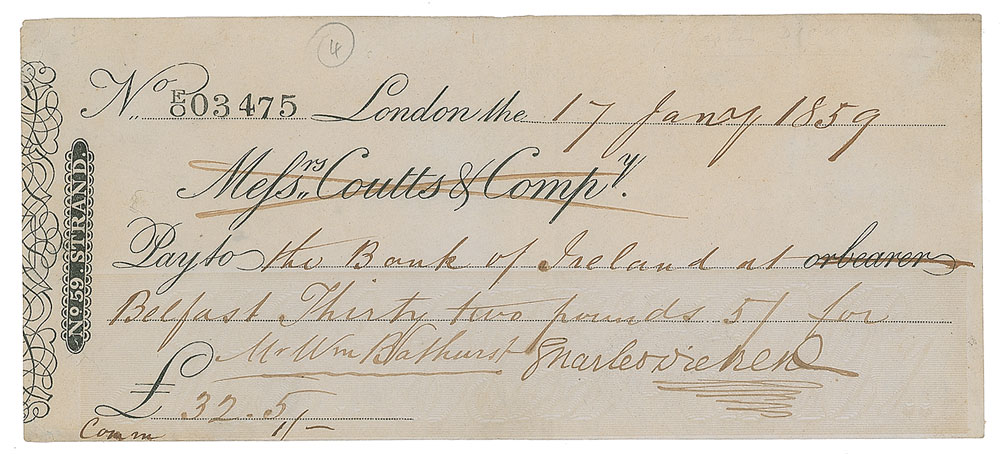 4
No. E/C 03475 London the 17 Jany 1859
Messrs. Coutts & Compy.
Pay to the Bank of Ireland at or bearer
Belfast Thirty two pounds 5/ for
Mr Wm Bathurst Charles Dickens
£ 32.5/-
Comm
No. 59. STRAND.